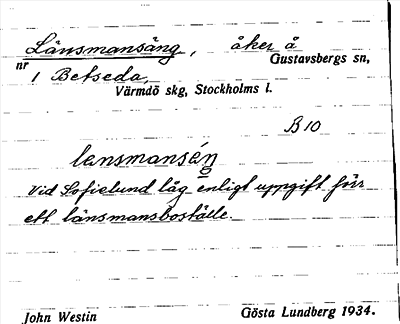 Länsmansäng, åker å
Gustavsbergs sn,
nr
1 Betseda,
Värmdö skg, Stockholms l.
B10
lensmanséŋ
Vid Sofielund låg enligt uppgift förr
ett länsmansboställe.
John Westin
Gösta Lundberg 1934.